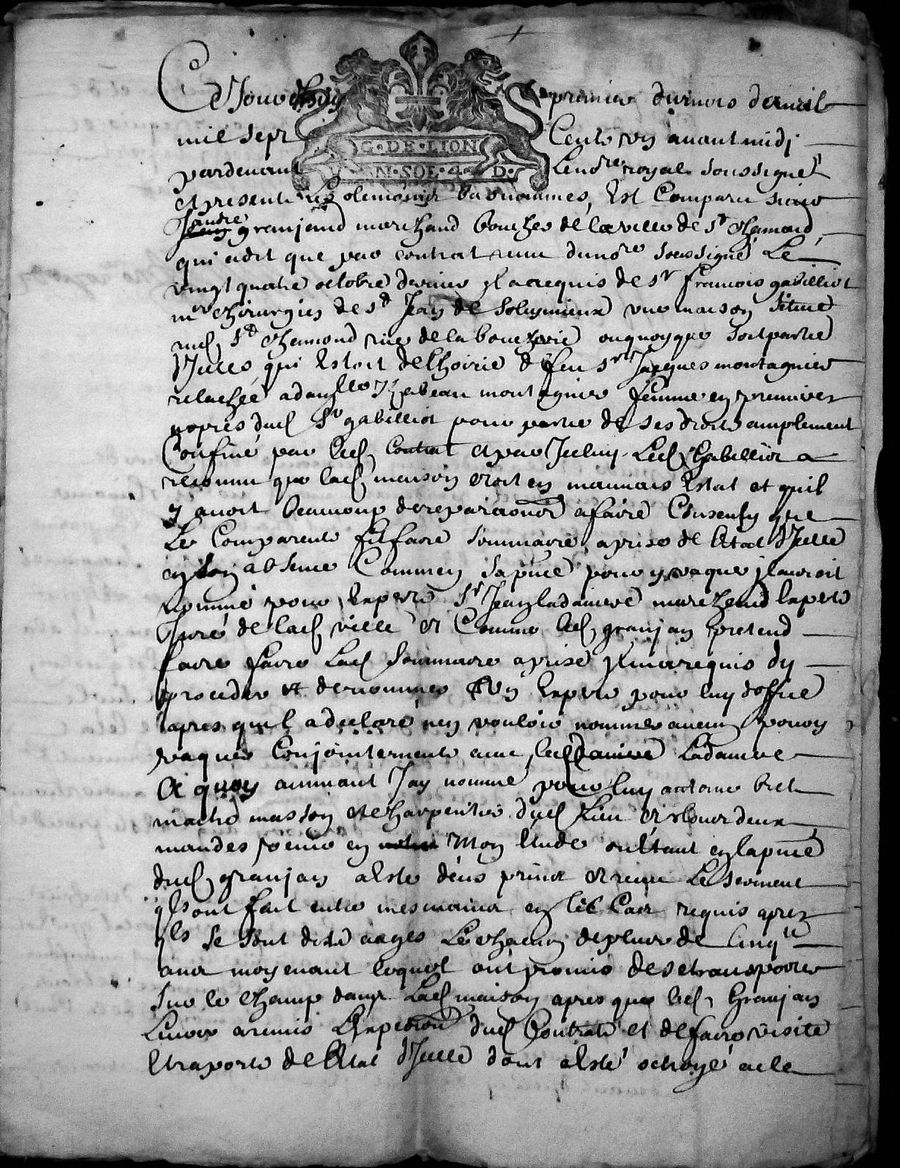 Ce Jourdhuy premier du mois davril
mil sept Cents un avant midy
G. DE. LION
N. SOL. 4. D.
pardevant Le no.re royal soussigné
et presents les tesmoins bas nommes, Est Comparu sieur
andre
granjand marchand boucher de la ville de st chamond,
qui a dit que par contrat receu du no.re soussigné Le
vingt quatre octobre dernier Jl a acquis de sr francois gabilliot
m.e chirurgien de st Jean de soleymieux une maison située
aud. st chamond rue de la boucherie ou quoy que soit partie
d'Jcelle qui Estoit de l'hoirie de feu sr Jacques montagnier
relachée a dam.lle Jzabeau montagnier femme en premieres
nopces dud. sr gabilliot pour partie de ses droits amplement
Confiné par led. Contrat et par Jceluy Led. sr Gabilliot a
reconnu que lad. maison etoit en mauvais Estat et qu'il
y avoit beaucoup de reparations a faire Consenty que
Le Comparent fit faire sommaire aprise de l'Etat d'Jcelle
en son absence Comme en sa pnce pour y vaquer Jl auroit
nommé pour Expert sr Jean ladaweve marchand Expert
Juré de lad. ville et Comme led. granjan pretend
faire faire lad. sommaire aprise Jl m'a requis d'y
proceder et de nommer Un Expert pour luy d'office
apres qu'il a declaré n'en vouloir nommer aucun pour y
vaquer Conjointement avec led. Ladaweve
A quoy aninant Jay nommé pour luy antoine
maitre masson et charpentier dud. Lieu et tous deux
mandes venir en Mon Etude ou Etant en la pnce
dud. granjan a Esté deux prins et receu Le serment
qu'ils ont fait entre mes mains en tel Cas requis apres
qu'ils se sont dits ages Le chacun de plus de Cinq.te
ans moyenant lequel ont promis de se transporter
sur le Champ dans Lad. maison apres que led. Granjan
Leur a remis L'Expedition dud. Contrat et de faire visite
Et raport de l'Etat d'Jcelle dont a Esté octroyé acte